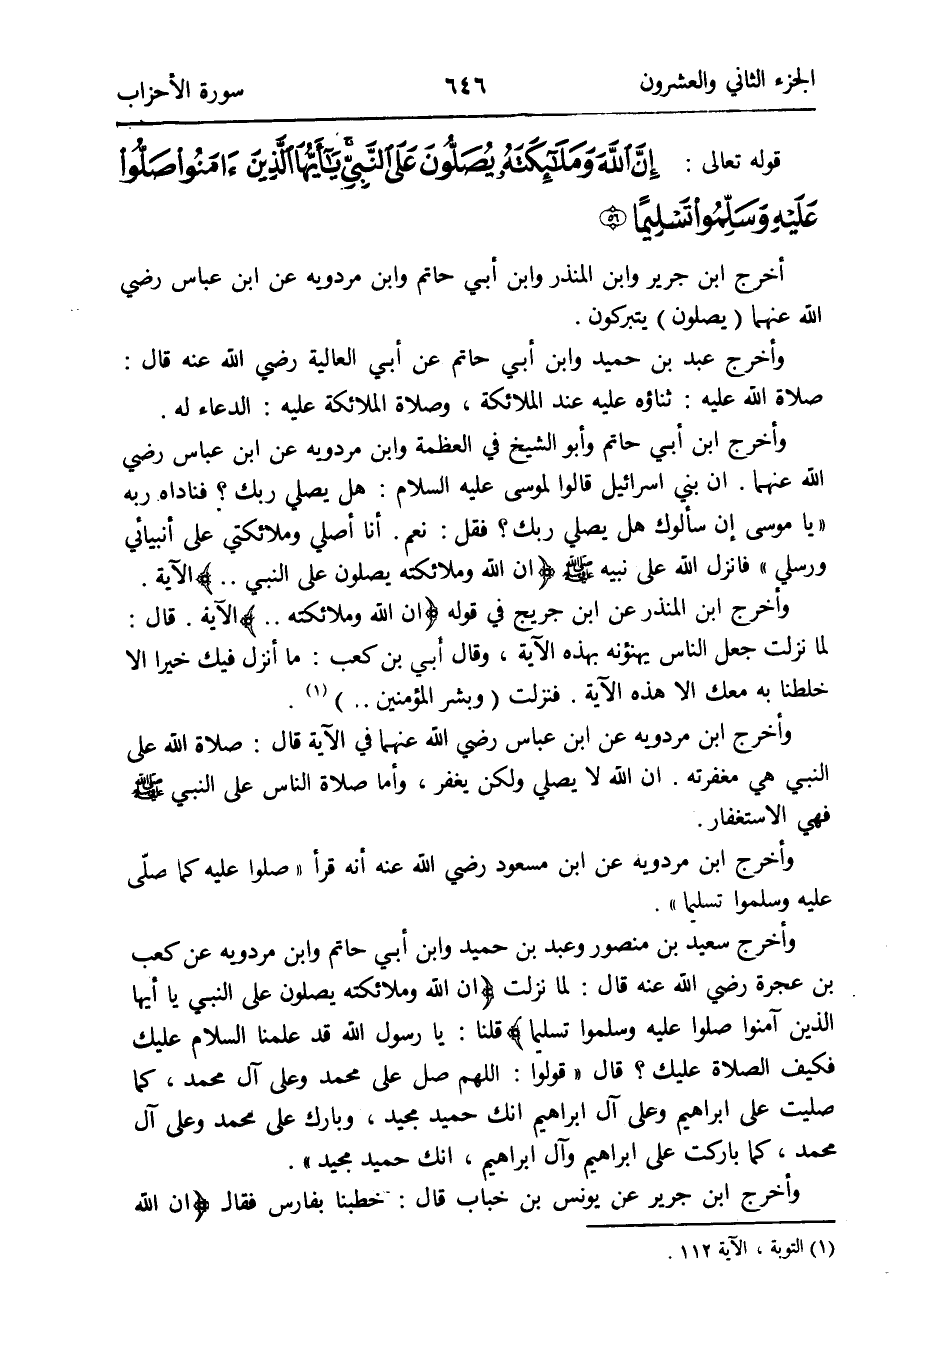 الجزء الثاني والعشرون ٦٤٦ سورة الأحزاب
قوله تعالى : إِنَّ ٱللَّهَ وَمَلَٰٓئِكَتَهُۥ يُصَلُّونَ عَلَى ٱلنَّبِيِّۚ يَٰٓأَيُّهَا ٱلَّذِينَ ءَامَنُوا۟ صَلُّوا۟
عَلَيْهِ وَسَلِّمُوا۟ تَسْلِيمًا ٥٦
أخرج ابن جرير وابن المنذر وابن أبي حاتم وابن مردويه عن ابن عباس رضي
الله عنهما ( يصلون ) يتبركون .
وأخرج عبد بن حميد وابن أبي حاتم عن أبي العالية رضي الله عنه قال :
صلاة الله عليه : ثناؤه عليه عند الملائكة ، وصلاة الملائكة عليه : الدعاء له .
وأخرج ابن أبي حاتم وأبو الشيخ في العظمة وابن مردويه عن ابن عباس رضي
الله عنهما . ان بني اسرائيل قالوا لموسى عليه السلام : هل يصلي ربك ؟ فناداه ربه
« يا موسى إن سألوك هل يصلي ربك ؟ فقل : نعم . أنا أصلي وملائكتي على أنبيائي
ورسلي » فانزل الله على نبيه ﷺ ﴿ ان الله وملائكته يصلون على النبي .. ﴾ الآية .
وأخرج ابن المنذر عن ابن جريج في قوله ﴿ ان الله وملائكته .. ﴾ الآية . قال :
لما نزلت جعل الناس يهنؤنه بهذه الآية ، وقال أبي بن كعب : ما أنزل فيك خيرا الا
خلطنا به معك الا هذه الآية . فنزلت ( وبشر المؤمنين .. ) (١) .
وأخرج ابن مردويه عن ابن عباس رضي الله عنهما في الآية قال : صلاة الله على
النبي هي مغفرته . ان الله لا يصلي ولكن يغفر ، وأما صلاة الناس على النبي ﷺ
فهي الاستغفار .
وأخرج ابن مردويه عن ابن مسعود رضي الله عنه أنه قرأ « صلوا عليه كما صلّى
عليه وسلموا تسليما » .
وأخرج سعيد بن منصور وعبد بن حميد وابن أبي حاتم وابن مردويه عن كعب
بن عجرة رضي الله عنه قال : لما نزلت ﴿ ان الله وملائكته يصلون على النبي يا أيها
الذين آمنوا صلوا عليه وسلموا تسليما ﴾ قلنا : يا رسول الله قد علمنا السلام عليك
فكيف الصلاة عليك ؟ قال « قولوا : اللهم صل على محمد وعلى آل محمد ، كما
صليت على ابراهيم وعلى آل ابراهيم انك حميد مجيد ، وبارك على محمد وعلى آل
محمد ، كما باركت على ابراهيم وآل ابراهيم ، انك حميد مجيد » .
وأخرج ابن جرير عن يونس بن خباب قال : خطبنا بفارس فقال ﴿ ان الله
(١) التوبة ، الآية ١١٢ .